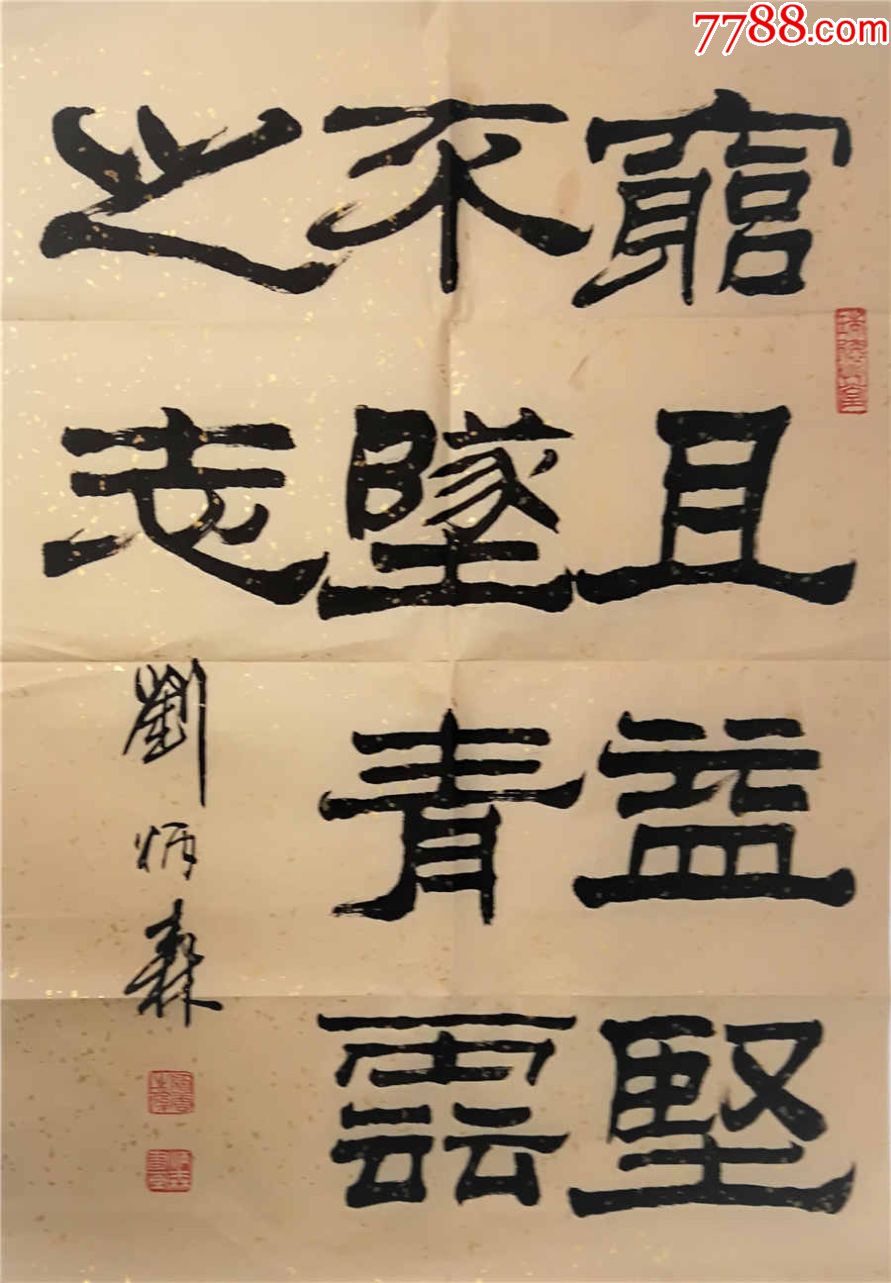 7788.com
窮且益堅
不墜青雲
之志
劉炳森